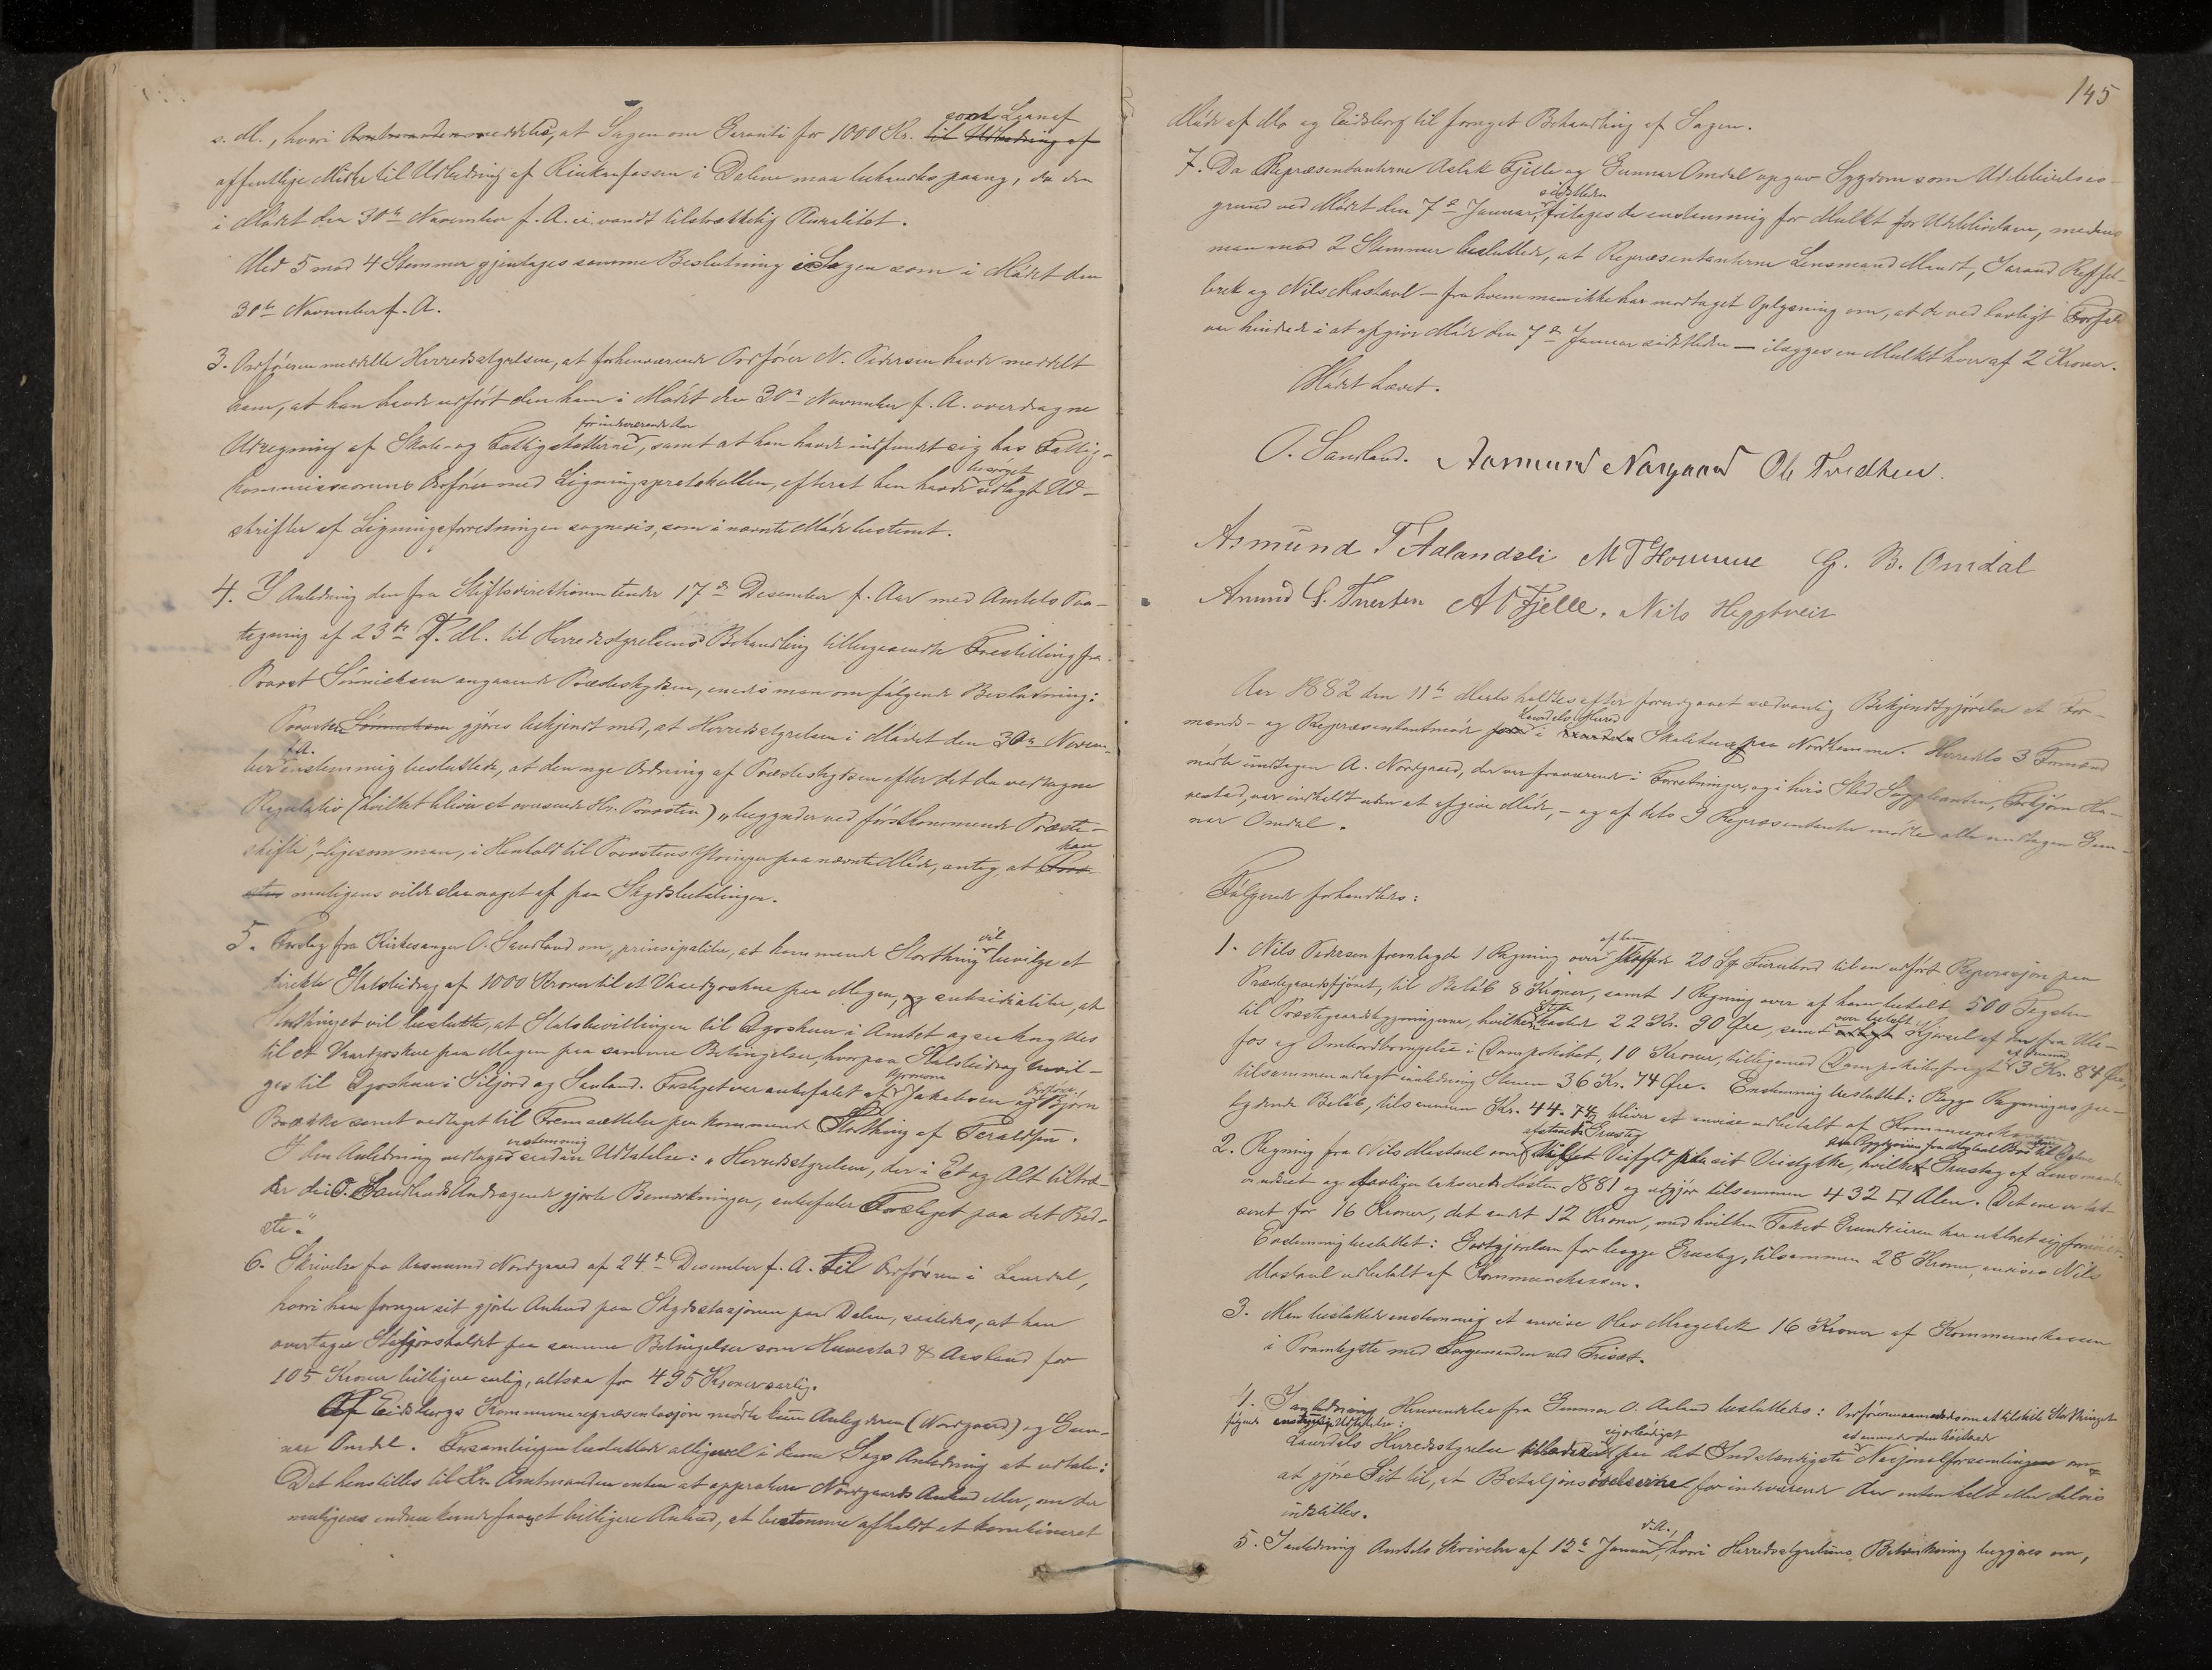 s. M., hvori meddeles, at Sagen om Garanti for 1000 Kr. til Udbedring af
samt Laan af
offentlige Midler til Udbedring af Rinkanfossen i Dalene maa behandles paany, da den
i Mødet den 30te November f. A. ei vandt tilstrækkelig Pluralitet.
Med 5 mod 4 Stemmer gjentages samme Beslutning i Sagen som i Mødet den
30te November f. A.
3. Ordføreren meddelte Herredsstyrelsen, at forhenværende Ordfører N. Pedersen havde meddelt
ham, at han havde udført den ham i Mødet den 30te November f. A. overdragne
for indeværende Aar
Udregning af Skole- og Fattigskatterne, samt at han havde indfundet sig hos Fattig-
besørget
kommissionens Ordfører med Ligningsprotokollen, efterat han havde udlagt Ud-
skrifter af Ligningsforretningen sognevis, som i nævnte Møde bestemt.
4. I Anledning den fra Stiftsdirektionen under 17de Desember f. Aar med Amtets Paa-
tegning af 23de s. M. til Herredsstyrelsens Behandling tilbagesendte Forestilling fra
Provst Sønnichsen angaaende Prædeskydsen, enedes man om følgende Beslutning:
Provsten Sønnichsen gjøres bekjendt med, at Herredsstyrelsen i Mødet den 30te Novem-
f. A.
ber enstemmig besluttede, at den nye Ordning af Prædeskydsen efter det da vedtagne
Regulativ (hvilket bliver at oversende Hr. Provsten) „begynder ved førstkommende Præste-
skifte", ligesom man, i Henhold til Provstens Ytringer paa nævnte Møde, antog, at Prov-
han
sten muligens vilde slaa noget af paa Skydsbetalingen.
5. Forslag fra Kirkesanger O. Sandland om, prinsipaliter, at kommende Storthing bevilge et
vil
direkte Statsbidrag af 1000 Kroner til et Vandgoshue paa Mogen, og subsidialiter, at
Storthinget vil beslutte, at Statsbevillingen til Dgoshuse i Amtet ogsaa kan ydes
til et paa Mogen paa samme Betingelser, hvorpaa Statsbidrag bevil-
ges til i Siljord og Sauland. Forslaget var anbefalet af Jakobsen og Bjørn
Bakke samt vedtaget til Fremsættelse paa kommende Storthing af Teraldsen.
enstemmig
I den Anledning vedtages saadan Udtalelse: „Herredsstyrelsen, der i Et og Alt tiltræ-
der de i O. Sandlands Andragende gjorte Bemærkninger, anbefaler Forslaget paa det Bed-
ste."
6. Skrivelse fra Aasmund Nordgaard af 24de Desember f. A. til Ordføreren i Laurdal,
hvori han fornyer sit gjorte Anbud paa Skydsstasjonen paa Dalen, saaledes, at han
overtager Stasjonsholdet paa samme Betingelser som Huvestad & Aasland for
105 Kroner billigere aarlig, altsaa for 495 Kroner aarlig.
Af Eidsborgs Kommunerepræsentasjon mødte kun Anbyderen (Nordgaard) og Gun-
nar Omdal. Forsamlingen besluttede alligevel i denne Sags Anledning at udtale:
Det henstilles til Hr. Amtmanden enten at approbere Nordgaards Anbud eller, om der
muligens endnu kunde faaes et billigere Anbud, at bestemme afholdt et kombineret
145
Møde af Mo og Eidsborg til fornyet Behandling af Sagen.
7. Da Repræsentanterne Aslak Fjelle og Gunnar Omdal opgav Sygdom som Udeblivelses-
sidstleden
grund ved Mødet den 7de Januar, fritages de enstemmig for Mulkt for Udeblivelsen, medens
man mod 2 Stemmer besluttede, at Repræsentanterne Lensmand Mandt, Tarand Roffel-
brek og Nils Mastavl – fra hvem man ikke har modtaget Oplysning om, at de ved lovligt Forfald
var hindrede i at afgive Møde den 7de Januar sidstleden – ilægges en Mulkt hver af 2 Kroner.
Mødet hævet.
O. Sandland. Aasmund Norgaard Ole Tveidten.
Asmund T Aalandsli M T Homme G. B. Omdal
Anund S. Tveiten A O Fjelle. Nils Heggtveit
Aar 1882 den 11te Marts holdtes efter forudgaaet sædvanlig Bekjendtgjørelse et For-
mands- og Repræsentantmøde for Laurdals Herred i Skolehuset paa Nordhomme. Herredets 3 Formænd
mødte undtagen A. Nordgaard, der var fraværende i Forretninger, og i hvis Sted Suppleanten, Torbjørn Hu-
vestad, var indkaldt uden at afgive Møde, – og af dets 9 Repræsentanter mødte alle undtagen Gun-
nar Omdal.
Følgende forhandledes:
af ham
1. Nils Pedersen fremlagde 1 Regning over skaffede 20 til en udført Reparasjon paa
Præstegaardsfjøset, til Beløb 8 Kroner, samt 1 Regning over af ham betalt 500 Tagsten
til Præstegaardsbygningerne, hvilke kostede 22 Kr. 90 Øre, samt Kjørsel af dem fra Ula-
over betalt
fos og Ombordbringelse i Dampskibet, 10 Kroner, tilligemed Dampskibsfragt 3 Kr. 84 Øre,
tilsammen udlagt i Anledning Stenen 36 Kr. 74 Øre. Enstemmig besluttet: Begge Regningers paa-
lydende Beløb, tilsammen Kr. 44.74 bliver at anvise udbetalt af Kommunekassen
2. Regning fra Nils Mastavl over Veifyld paa sit Veistykke, hvilket Grustag af Lensmanden
anviset og lovligen takseret Høsten 1881 og udgjør tilsammen 432 □ Alen. Det ene er tak-
seret for 16 Kroner, det andet 12 Kroner, med hvilken Takst Grundeieren har erklæret sig fornøiet.
Enstemmig besluttet: Godtgjørelsen for begge Grustag, tilsammen 28 Kroner, anvises Nils
Mastavl udbetalt af Kommunekassen.
3. Man besluttede enstemmig at anvise Olav Mragebek 16 Kroner af Kommunekassen
i med Færgemanden ved Triset.
4. I Anledning Henvendelse fra Gunnar O. Aaland besluttedes: Ordføreren anmodes om at tilstille Storthinget
følgende enstemmige Udtalelse:
Laurdals Herredsstyrelse paa det Indstændigste Nasjonalforsamlingen om
at gjøre Sit til, at Betaljonsøvelserne for indeværende Aar enten helt eller delvis
indstilles.
d. A.,
5. I Anledning Amtets Skrivelse af 12te Januar, hvori Herredsstyrelsens Betænkning begjæres om,